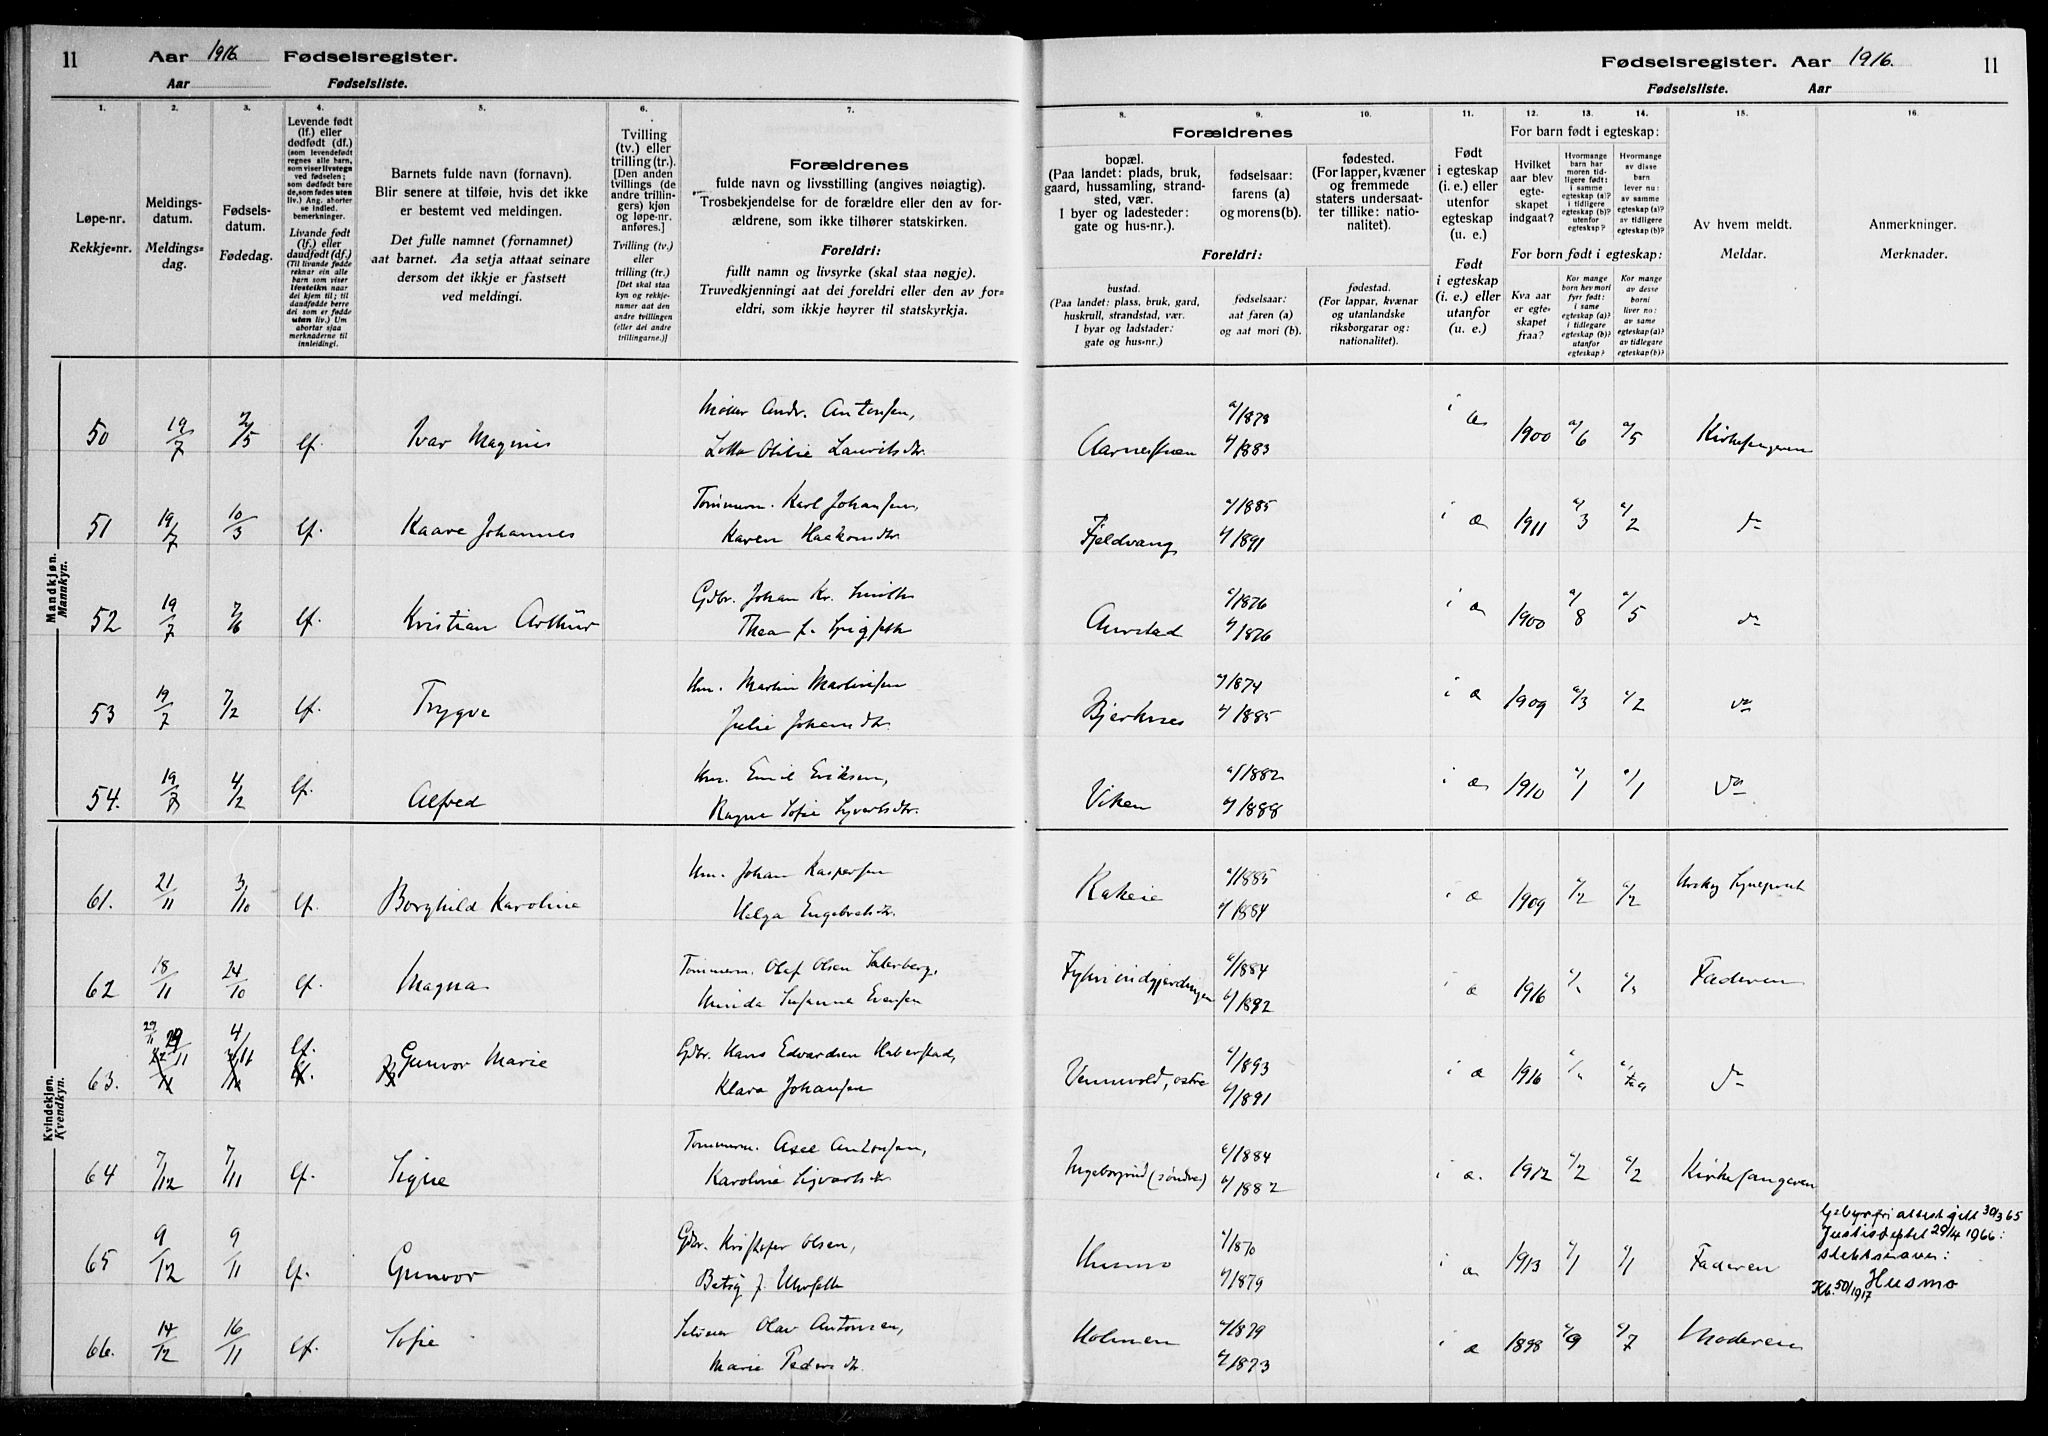 11 Aar 1916. Fødselsregister.
Aar Fødselsliste.
Fødselsregister. Aar 1916. 11
Fødselsliste. Aar
1. 2. 3. 4. 5. 6. 7.
8. 9. 10. 11. 12. 13. 14. 15. 16.
Løpe-nr.
Rekkje=nr.
Meldings-
datum.
Meldings=
dag.
Fødsels-
datum.
Fødedag.
Levende født
(lf.) eller
dødfødt (df.)
(som levendefødt
regnes alle barn,
som viser livstegn
ved fødselen;
som dødfødt bare
de, som fødes uten
liv.) Ang. aborter
se indled.
bemerkninger.
Livande født
(lf.) eller
daudfødt (df.)
(Til livande fødde
reknar ein alle
barn som viser
livsteikn naar
dei kjem til; til
daudfødde berre
dei som er fødde
utan liv.) Um
abortar sjaa
merknaderne til
innleidingi.
Barnets fulde navn (fornavn).
Blir senere at tilføie, hvis det ikke
er bestemt ved meldingen.
Det fulle namnet (fornamnet)
aat barnet. Aa setja attaat seinare
dersom det ikkje er fastsett
ved meldingi.
Tvilling
(tv.) eller
trilling (tr.).
[Den anden
tvillings (de
andre trillin-
gers) kjøn
og løpe-nr.
anføres.]
Tvilling (tv.)
eller
trilling (tr.)
[Det skal staa
kyn og rekkje-
nummer aat den
andre tvillingen
(eller dei andre
trillingarne.)]
Forældrenes
fulde navn og livsstilling (angives nøiagtig).
Trosbekjendelse for de forældre eller den av for-
ældrene, som ikke tilhører statskirken.
Foreldri:
fullt namn og livsyrke (skal staa nøgje).
Truvedkjenningi aat dei foreldri eller den av for=
eldri, som ikkje høyrer til statskyrkja.
Forældrenes
bopæl.
(Paa landet: plads, bruk,
gaard, hussamling, strand-
sted, vær.
I byer og ladesteder:
gate og hus-nr.).
fødselsaar:
farens (a)
og morens (b).
fødested.
(For lapper, kvæner
og fremmede
staters undersaat-
ter tillike: natio-
nalitet).
Foreldri:
bustad.
(Paa landet: plass, bruk, gard,
huskrull, strandstad, vær.
I byar og ladstader:
gate og hus-nr.)
fødselsaar:
aat faren (a)
og aat mori (b).
fødestad.
(For lappar, kvænar
og utanlandske
riksborgarar og:
nationalitet).
Født
i egteskap
(i. e.) eller
utenfor
egteskap
(u. e.)
Født
i egteskap
(i. e.) eller
utanfor
(u. e.)
For barn født i egteskap:
Hvilket
aar blev
egte-
skapet
indgaat?
Hvormange
barn har
moren tid-
ligere født:
i samme
egteskap (a)?
i tidligere
egteskap (b)?
utenfor
egteskap?
Hvormange
av disse
barn
lever nu:
av samme
egteskap (a)?
av tidligere
egteskap (b)?
For born født i egteskap:
Kva aar
er egte-
skapet
fraa?
Kor mange
born hev mori
fyrr født:
i same
egteskap (a)?
i tidlegare
egteskap (b)?
utanfor
egteskap?
Kor mange
av desse
borni
liver no:
av same
egteskap (a)?
av tidlegare
egteskap (b)?
Av hvem meldt.
Meldar.
Anmerkninger.
Merknader.
Mandkjøn.
Mannkyn.
50 19/7 2/5 lf. Ivar Magnus Andr. Antonsen,
a/1878 i e 1900 a/6 a/5 Kirkesangeren
b/1883
51 19/7 10/3 lf. Kaare Johannes Tømmerm. Karl Johansen,
Karen Haakonsdtr. Fjeldvang a/1885 i e 1911 a/3 a/2 do
b/1891
52 19/7 7/6 lf. Kristian Arthur Gdbr. Johan Kr.
Thea Aurstad a/1876 i e 1900 a/8 a/5 do
b/1876
53 19/7 7/2 lf. Trygve Hm. Martin Martinsen
Julie Johansdtr. Bjerknes a/1874 i e 1909 a/3 a/2 do
b/1885
54. 19/7 4/2 lf. Alfred Hm. Emil Eriksen,
Ragna Sofie Syvertsdtr. Viken a/1882 i e 1910 a/1 a/1 do
b/1888
Kvindekjøn.
Kvendkyn.
61. 21/11 3/10 lf. Borghild Karoline Hm. Johan Kaspersen
Helga Engebretsdtr. Kakeie a/1885 i e 1909 a/2 a/2 Urskog
b/1884
62 18/11 24/10 lf. Magna Tømmerm. Olaf Olsen
Minda Susanna Evensen a/1884 i e 1916 Faderen
b/1892
63. 29/11 4/11 lf. Gunvor Marie Gdbr. Hans Edvardsen Haberstad,
Klara Johansen Vennevold, østre a/1893 i e 1916 do
b/1891
64 7/12 7/11 lf. Signe Tømmerm. Axel Antonsen,
Karoline Syvertsdtr. Ingeborgrud (søndre) a/1884 i e. 1912 a/2 a/2 Kirkesangeren
b/1882
65 9/12 9/11 lf. Gunvor Gdbr. Kristofer Olsen,
Betsy f. Husmo a/1870 i e 1913 a/1 a/1 Faderen
b/1879
Gebyrfri attest gitt 30/3 65
Justisdeptet 29/4 1966:
slektsnavn:
Husmo
Kb. 50/1917
66. 14/12 16/11 lf. Sofie Olav Antonsen,
Marie Pedersdtr. Holmen a/1879 i e 1898 a/9 a/7 Moderen
b/1873